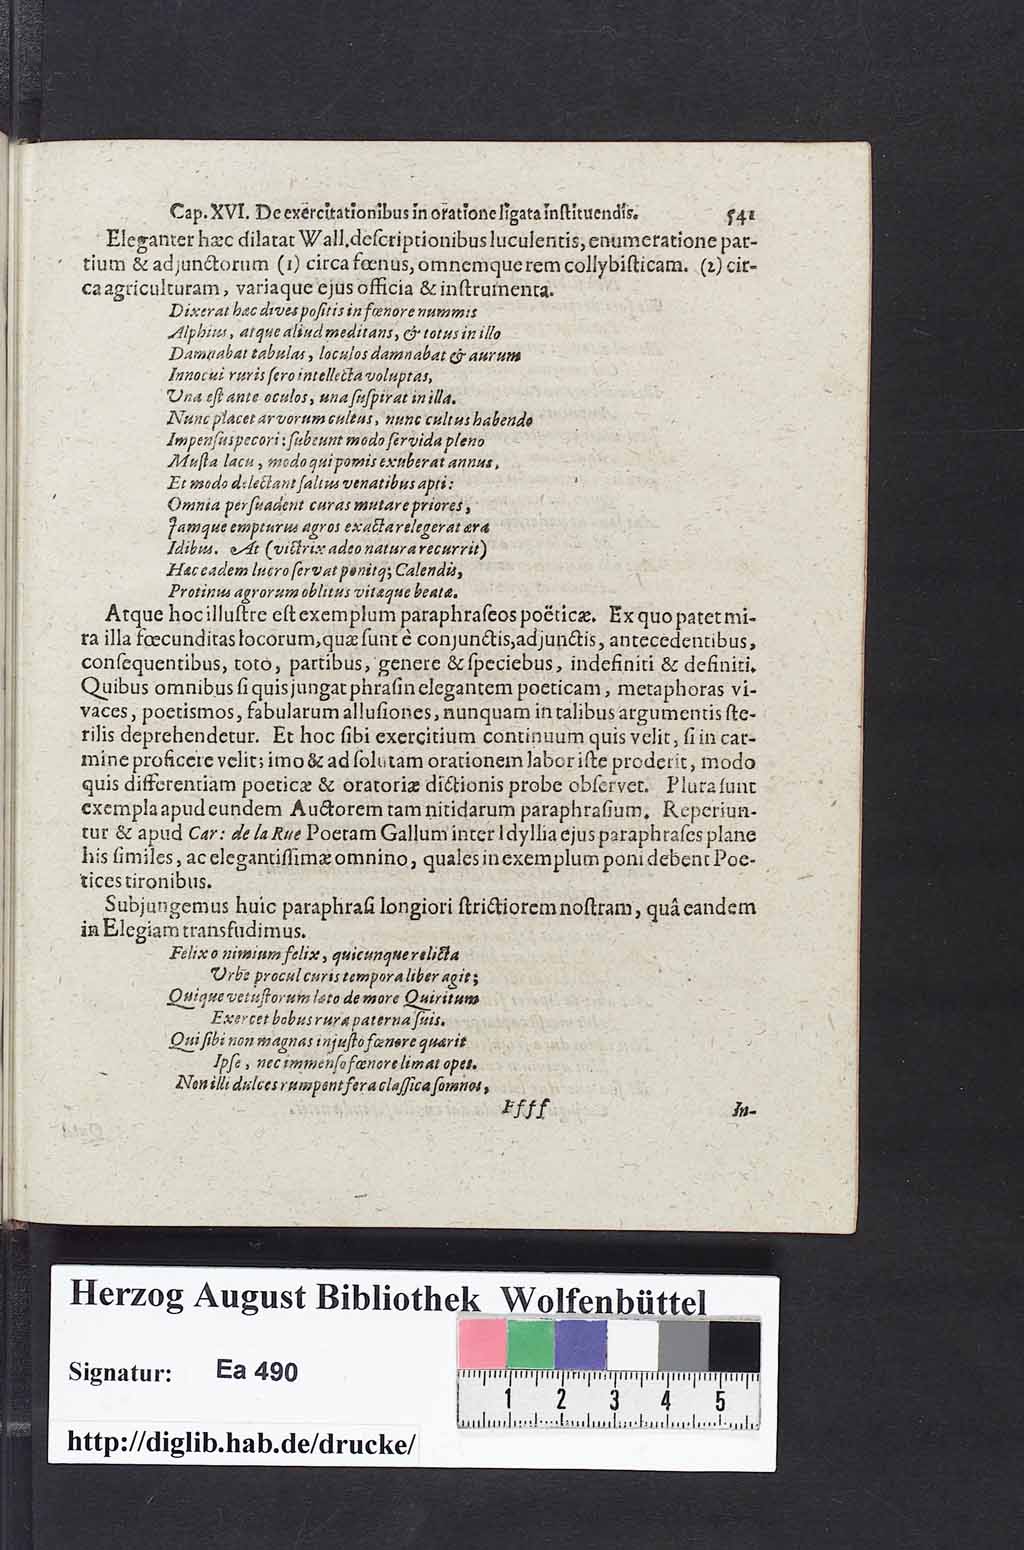 Cap. XVI. De exercitationibus in oratione ligata inſtituendis. 541
Eleganter hæc dilatat Wall. deſcriptionibus luculentis, enumeratione par-
tium & adjunctorum (1) circa fœnus, omnemque rem collybiſticam. (2) cir-
ca agriculturam, variaque ejus officia & inſtrumenta.
Dixerat hæc dives poſitis in fœnore nummis
Alphius, atque aliud meditans, & totus in illo
Damnabat tabulas, loculos damnabat & aurum
Innocui ruris ſero intellecta voluptas,
Una eſt ante oculos, una ſuſpirat in illa.
Nunc placet arvorum cultus, nunc cultus habendo
Impenſus pecori: ſubeunt modo fervida pleno
Muſta lacu, modo qui pomis exuberat annus,
Et modo delectant ſaltus venatibus apti:
Omnia perſuadent curas mutare priores,
Jamque empturus agros exacta relegerat æra
Idibus. At (victrix adeo natura recurrit)
Hæc eadem lucro ſervat ponitq; Calendis,
Protinus agrorum oblitus vitæque beatæ.
Atque hoc illuſtre eſt exemplum paraphraſeos poëticæ. Ex quo patet mi-
ra illa fœcunditas locorum, quæ ſunt è conjunctis, adjunctis, antecedentibus,
conſequentibus, toto, partibus, genere & ſpeciebus, indefiniti & definiti.
Quibus omnibus ſi quis jungat phraſin elegantem poeticam, metaphoras vi-
vaces, poetismos, fabularum alluſiones, nunquam in talibus argumentis ſte-
rilis deprehendetur. Et hoc ſibi exercitium continuum quis velit, ſi in car-
mine proficere velit; imo & ad ſolutam orationem labor iſte proderit, modo
quis differentiam poeticæ & oratoriæ dictionis probe obſervet. Plura ſunt
exempla apud eundem Auctorem tam nitidarum paraphraſium. Reperiun-
tur & apud Car: de la Rue Poetam Gallum inter Idyllia ejus paraphraſes plane
his ſimiles, ac elegantiſſimæ omnino, quales in exemplum poni debent Poe-
tices tironibus.
Subjungemus huic paraphraſi longiori ſtrictiorem noſtram, quâ eandem
in Elegiam transfudimus.
Felix o nimium felix, quicunque relicta
Urbe procul curis tempora liber agit;
Quique vetuſtorum læto de more Quiritum
Exercet bobus rura paterna ſuis.
Qui ſibi non magnas injuſto fœnore quærit
Ipſe, nec immenſo fœnore limat opes.
Non illi dulces rumpent fera claſſica ſomnos,
Ffff In-
Herzog August Bibliothek Wolfenbüttel
Signatur: Ea 490
1 2 3 4 5
http://diglib.hab.de/drucke/